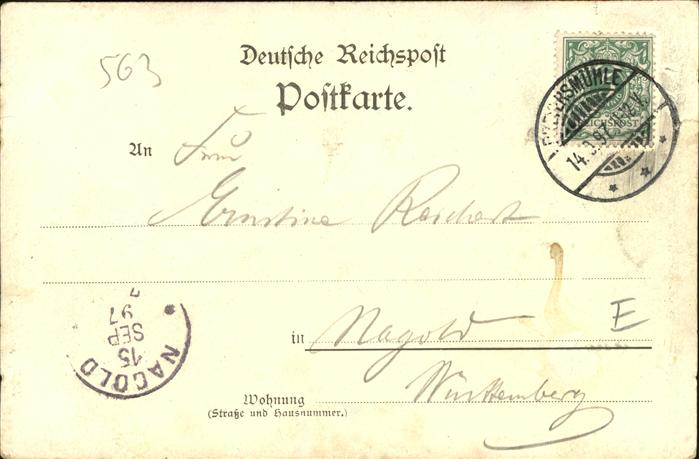 563
Deutsche Reichspost
Postkarte.
An Frau
Ernstine Reichert
in Nagold
E
Württemberg
Wohnung
(Straße und Hausnummer.)
REICHSPOST
14.9.97
NAGOLD
15
SEP
97